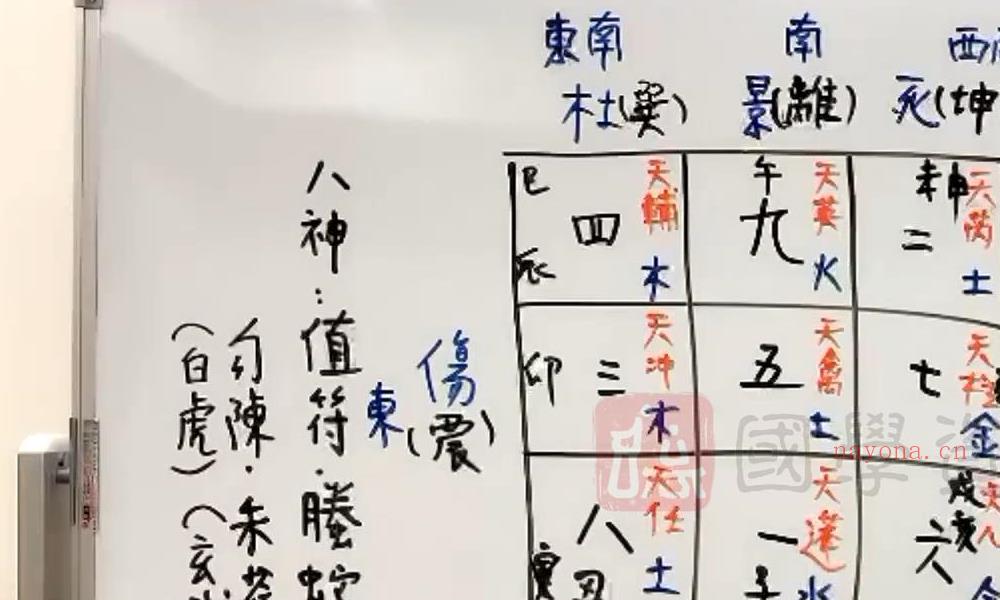 東南 南 西
杜(巽) 景(離) 死(坤
巳 天輔 午 天英 未申 天芮
四 九 二
辰 木 火 土
卯 三 天冲 五 天禽 七 天柱
木 土 金
八 天任 一 天逢 六 戌亥
寅 丑 土 子 水
傷
東(震)
八神：值符·螣蛇
勾陳·朱
(白虎)(玄
國學
nayona.cn